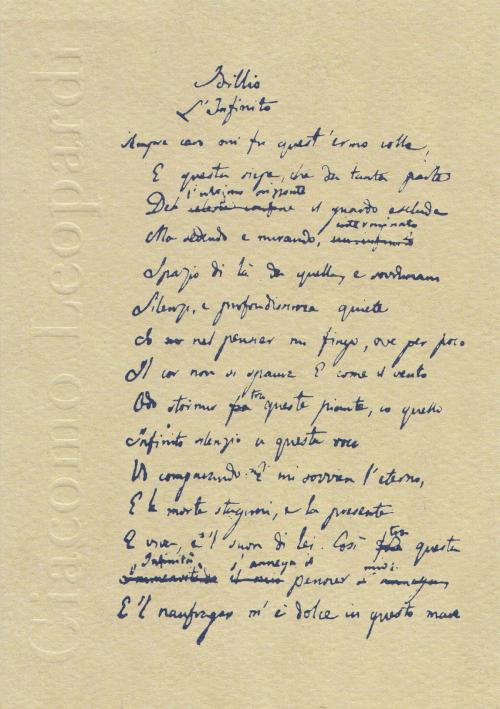 Giacomo Leopardi
Idillio
L'Infinito
Sempre caro mi fu quest'ermo colle,
E questa siepe, che da tanta parte
l'ultimo orizzonte
Del celeste confine il guardo esclude
interminato
Ma sedendo e mirando,
Spazio di là da quella, e sovrumani
Silenzi, e profondissima quiete
Io nel pensier mi fingo, ove per poco
Il cor non si spaura E come il vento
tra
Odo stormir fra queste piante, io quello
Infinito silenzio a questa voce
Vo comparando: E mi sovvien l'eterno,
E le morte stagioni, e la presente
E viva, e'l suon di lei. Così fra tra questa
Infinità s'annega il mio
Immensità il mio pensier s'annega
E'l naufragar m'è dolce in questo mare